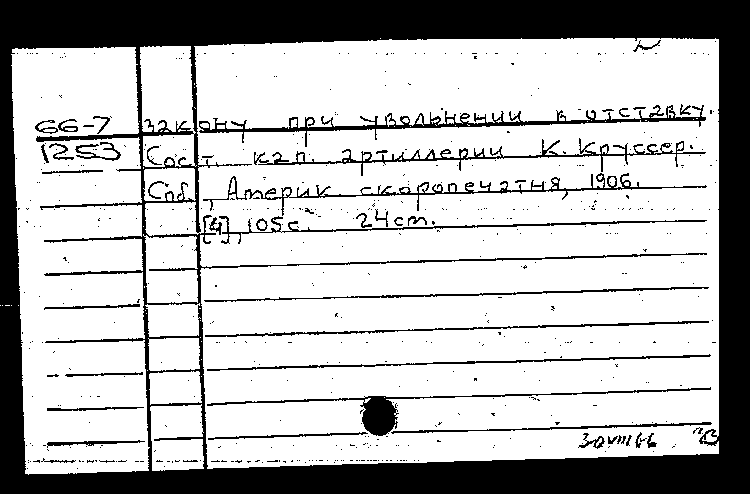 66-7 закону при увольнении в отставку.
1253 Сост. кап. артиллерии К. Круссер.
Спб., Америк. скоропечатня, 1906.
[4], 105 с. 24 см.
30 VIII 66